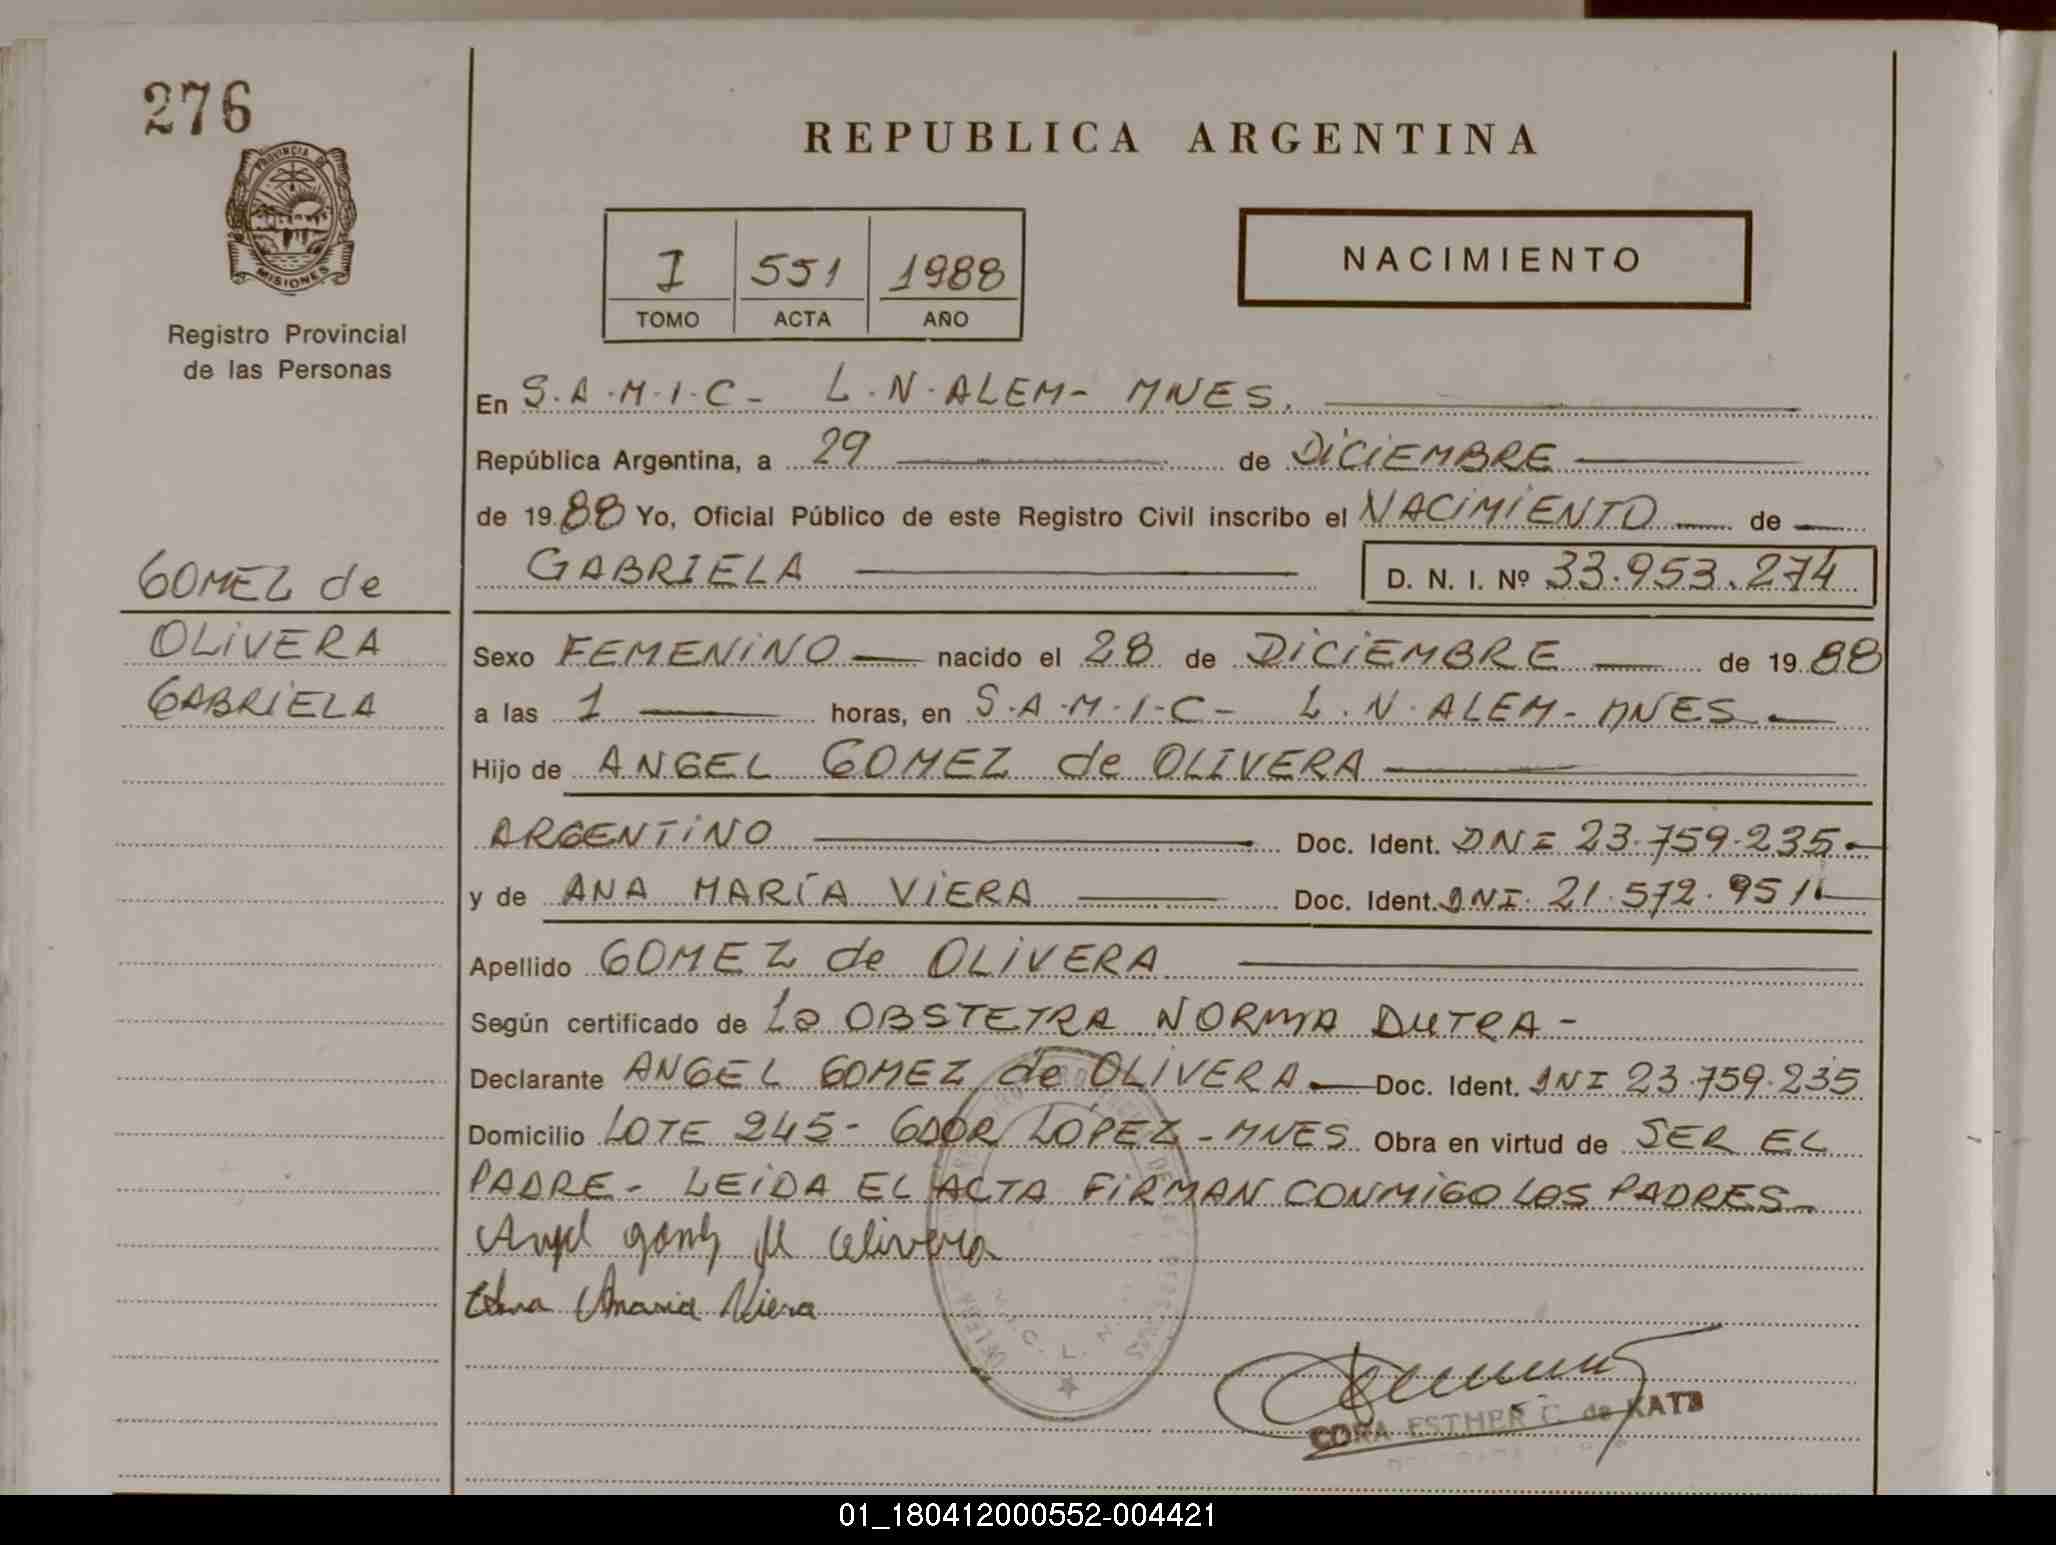 276
PROVINCIA DE
MISIONES
Registro Provincial
de las Personas
GOMEZ de
OLIVERA
GABRIELA
REPUBLICA ARGENTINA
I 551 1988
TOMO ACTA AÑO
NACIMIENTO
En S.A.M.I.C- L.N.ALEM- MNES.
República Argentina, a 29 de DICIEMBRE
de 1988 Yo, Oficial Público de este Registro Civil inscribo el NACIMIENTO de
GABRIELA D. N. I. Nº 33.953.274
Sexo FEMENINO nacido el 28 de DICIEMBRE de 1988
a las 1 horas, en S.A.M.I.C- L.N.ALEM- MNES
Hijo de ANGEL GOMEZ de OLIVERA
ARGENTINO Doc. Ident. DNI 23.759.235
y de ANA MARÍA VIERA Doc. Ident. DNI. 21.572.951
Apellido GOMEZ de OLIVERA
Según certificado de La OBSTETRA NORMA DUTRA-
Declarante ANGEL GOMEZ de OLIVERA Doc. Ident. DNI 23.759.235
Domicilio LOTE 245- GDOR LÓPEZ - MNES Obra en virtud de SER EL
PADRE- LEIDA EL ACTA FIRMAN CONMIGO LOS PADRES
Angel gomez de olivera
Ana Maria Viera
CORA ESTHER C. de KATZ
01_180412000552-004421